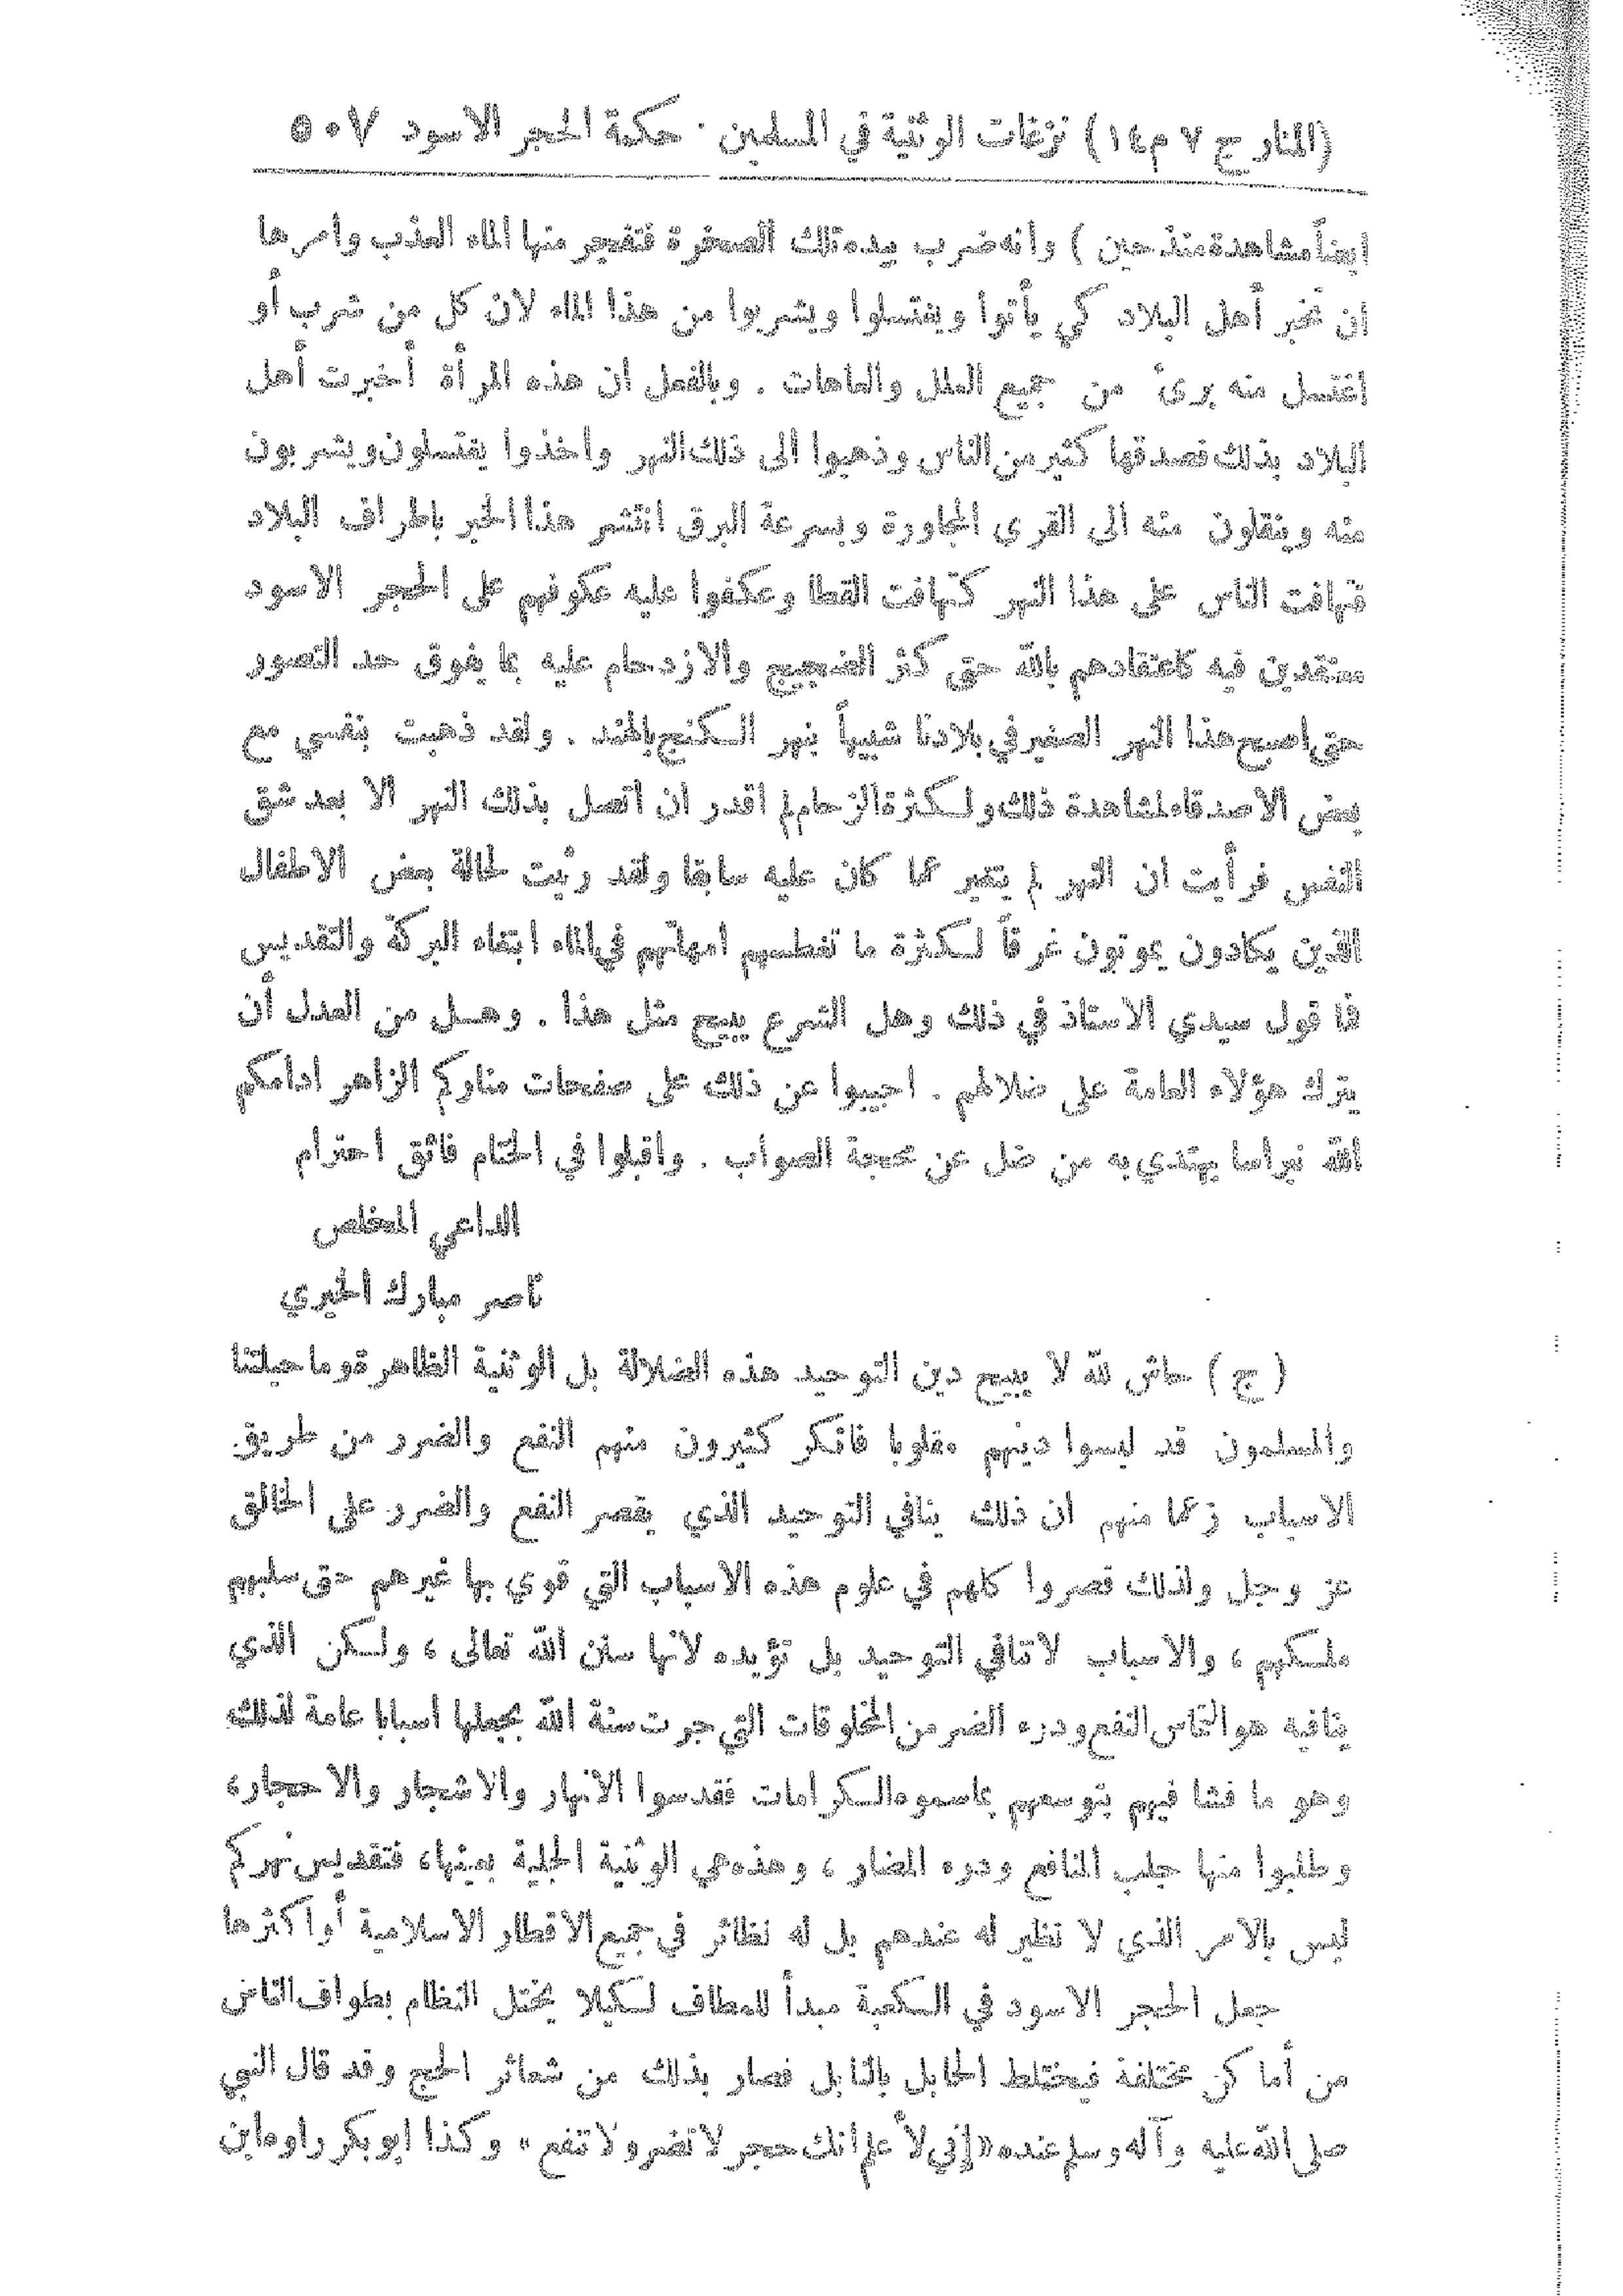 (المنار ج ٧ م ١٤) نزغات الوثنية في المسلمين . حكمة الحجر الاسود ٥٠٧
ايضاً مشاهدة منذ حين ) وانه ضرب بيده تلك الصخرة فتفجر منها الماء العذب وامرها
ان تخبر أهل البلاد كي يأتوا ويغتسلوا ويشربوا من هذا الماء لان كل من شرب أو
اغتسل منه برئ من جميع العلل والعاهات . وبالفعل ان هذه المرأة أخبرت أهل
البلاد بذلك فصدقها كثير من الناس وذهبوا الى ذلك النهر واخذوا يغتسلون ويشربون
منه وينقلون منه الى القرى المجاورة وبسرعة البرق انتشر هذا الخبر باطراف البلاد
فتهافت الناس على هذا النهر كتهافت القطا وعكفوا عليه عكوفهم على الحجر الاسود
معتقدين فيه كاعتقادهم بالله حتى كثر الضجيج والازدحام عليه بما يفوق حد التصور
حتى اصبح هذا النهر الصغير في بلادنا شبيهاً بنهر الكنج بالهند . ولقد ذهبت بنفسي مع
بعض الاصدقاء لمشاهدة ذلك ولكثرة الزحام لم اقدر ان اتصل بذلك النهر الا بعد شق
النفس فرأيت ان النهر لم يتغير عما كان عليه سابقا ولقد رثيت لحالة بعض الاطفال
الذين يكادون يموتون غرقاً لكثرة ما تغطسهم امهاتهم في الماء ابتغاء البركة والتقديس
فما قول سيدي الاستاذ في ذلك وهل الشرع يبيح مثل هذا . وهل من العدل أن
يترك هؤلاء العامة على ضلالهم . اجيبوا عن ذلك على صفحات مناركم الزاهر ادامكم
الله نبراسا يهتدي به من ضل عن محجة الصواب . واقبلوا في الختام فائق احترام
الداعي المخلص
ناصر مبارك الخيري
( ج ) حاش لله لا يبيح دين التوحيد هذه الضلالة بل الوثنية الظاهرة وما حيلتنا
والمسلمون قد لبسوا دينهم مقلوبا فانكر كثيرون منهم النفع والضرر من طريق
الاسباب زعما منهم ان ذلك ينافي التوحيد الذي يقصر النفع والضرر على الخالق
عز وجل ولذلك قصروا كلهم في علوم هذه الاسباب التي قوي بها غيرهم حتى سلبهم
ملكهم ، والاسباب لا تنافي التوحيد بل تؤيده لانها سنن الله تعالى ، ولكن الذي
ينافيه هو التماس النفع ودرء الضر من المخلوقات التي جرت سنة الله بجعلها اسبابا عامة لذلك
وهو ما فشا فيهم بتوسعهم بما سموه الكرامات فقدسوا الانهار والاشجار والاحجار،
وطلبوا منها جلب المنافع ودرء المضار ، وهذه هي الوثنية الجلية بعينها، فتقديس نهركم
ليس بالامر الذي لا نظير له عندهم بل له نظائر في جميع الاقطار الاسلامية أو اكثرها
جعل الحجر الاسود في الكعبة مبدأ للمطاف لكيلا يختل النظام بطواف الناس
من أماكن مختلفة فيختلط الحابل بالنابل فصار بذلك من شعائر الحج وقد قال النبي
صلى الله عليه وآله وسلم عنده «إني لأعلم أنك حجر لا تضر ولا تنفع» وكذا ابو بكر رواه ابن